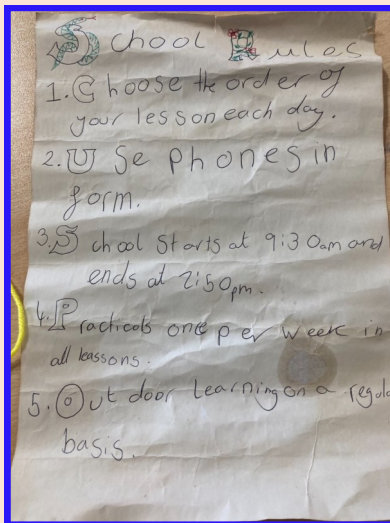 School Rules
1. Choose the order of
your lesson each day.
2. Use phones in
form.
3. School starts at 9:30am and
ends at 2:50pm.
4. Practicals one per week in
all leassons.
5. Out door learning on a regula
basis.